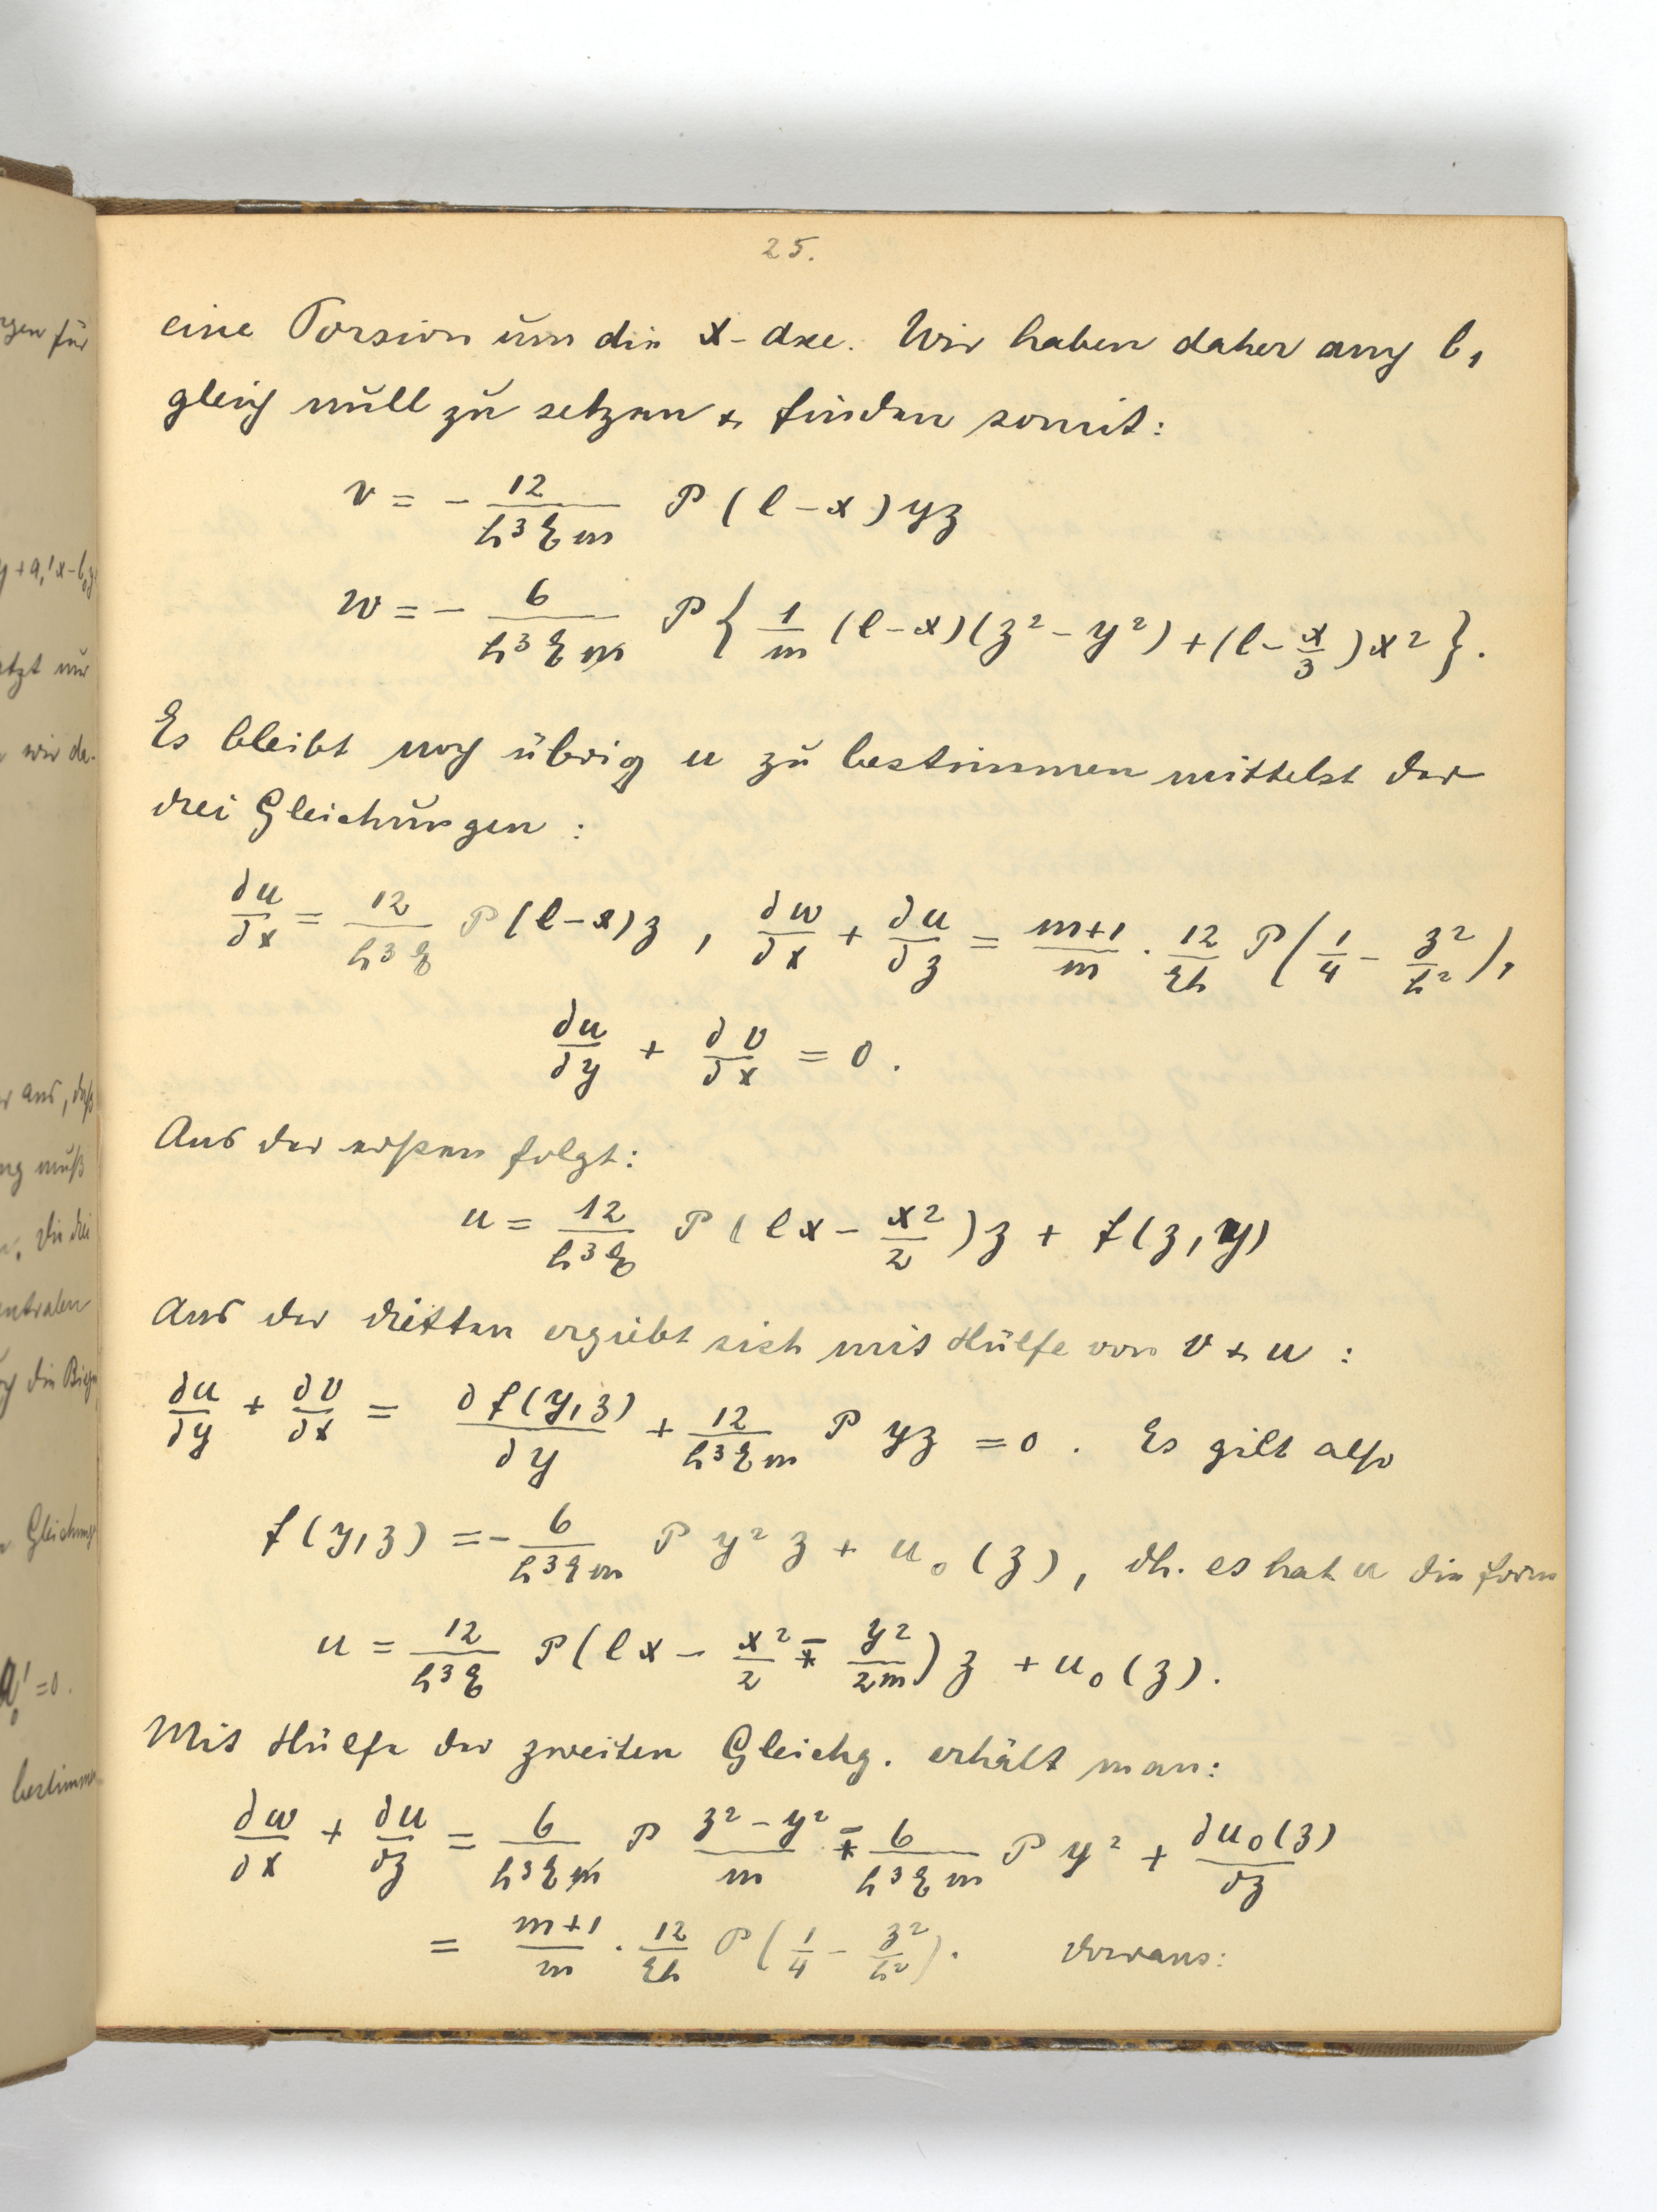 rgen für
y + a,'x - b₀z
etzt nur
wir da-
aus, daß
ng muß
Die drei
entralen
die Biegu
Gleichung
a₀' = 0.
bestimm
25.
eine Torsion um die x-Axe. Wir haben daher auch b₁
gleich null zu setzen & finden somit:
v = - 12/(h³ℰm) P (l - x) yz
w = - 6/(h³ℰm̸) P { 1/m (l - x)(z² - y²) + (l - x/3) x² }.
Es bleibt noch übrig u zu bestimmen mittelst der
drei Gleichungen :
∂u/∂x = 12/(h³ℰ) P (l - x) z , ∂w/∂x + ∂u/∂z = (m+1)/m · 12/(ℰh) P (1/4 - z²/h²),
∂u/∂y + ∂v/∂x = 0 .
Aus der ersten folgt:
u = 12/(h³ℰ) P (lx - x²/2) z + f(z, y)
Aus der dritten ergiebt sich mit Hülfe von v & u :
∂u/∂y + ∂v/∂x = ∂f(y,z)/∂y + 12/(h³ℰm) P yz = 0 . Es gilt also
f(y,z) = - 6/(h³ℰm) P y² z + u₀(z), dh. es hat u die Form
u = 12/(h³ℰ) P (lx - x²/2 - y²/2m) z + u₀(z).
Mit Hülfe der zweiten Gleichg. erhält man:
∂w/∂x + ∂u/∂z = 6/(h³ℰm̸) P (z² - y²)/m - 6/(h³ℰm) P y² + ∂u₀(z)/∂z
= (m+1)/m · 12/(ℰh) P (1/4 - z²/h²). Woraus: